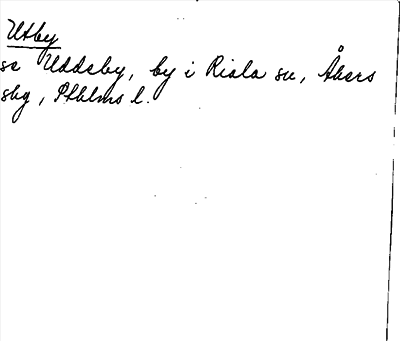 Utby
se Uddeby, by i Riala sn, Åkers
sbg, Sthlms l.